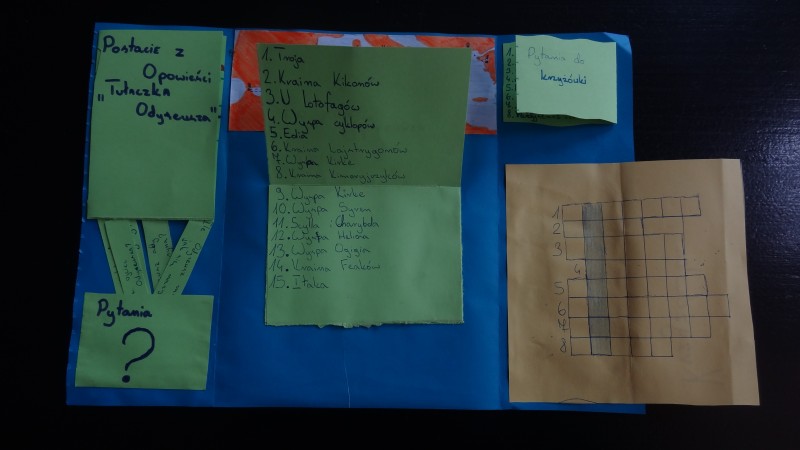 Postacie z
Opowieści
"Tułaczka
Odyseusza".
Pytania
?
1. Troja
2. Kraina Kikonów
3. U Lotofagów
4. Wyspa cyklopów
5. Eolia
6. Kraina Lajstrygonów
7. Wyspa Kirke
8. Kraina Kimeryjczyków
9. Wyspa Kirke
10. Wyspa Syren
11. Scylla i Charybda
12. Wyspa Heliosa
13. Wyspa Ogigia
14. Kraina Feaków
15. Itaka
Pytania do
krzyżówki
1
2
3
4
5
6
7
8